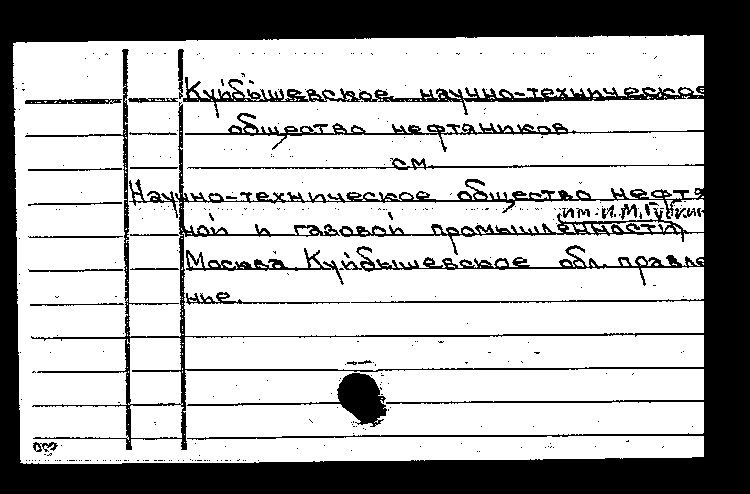 Куйбышевское научно-техническое
общество нефтяников.
см.
Научно-техническое общество нефтя
им. И.М. Губкин
ной и газовой промышленности,
Москва. Куйбышевское обл. правле
ние.